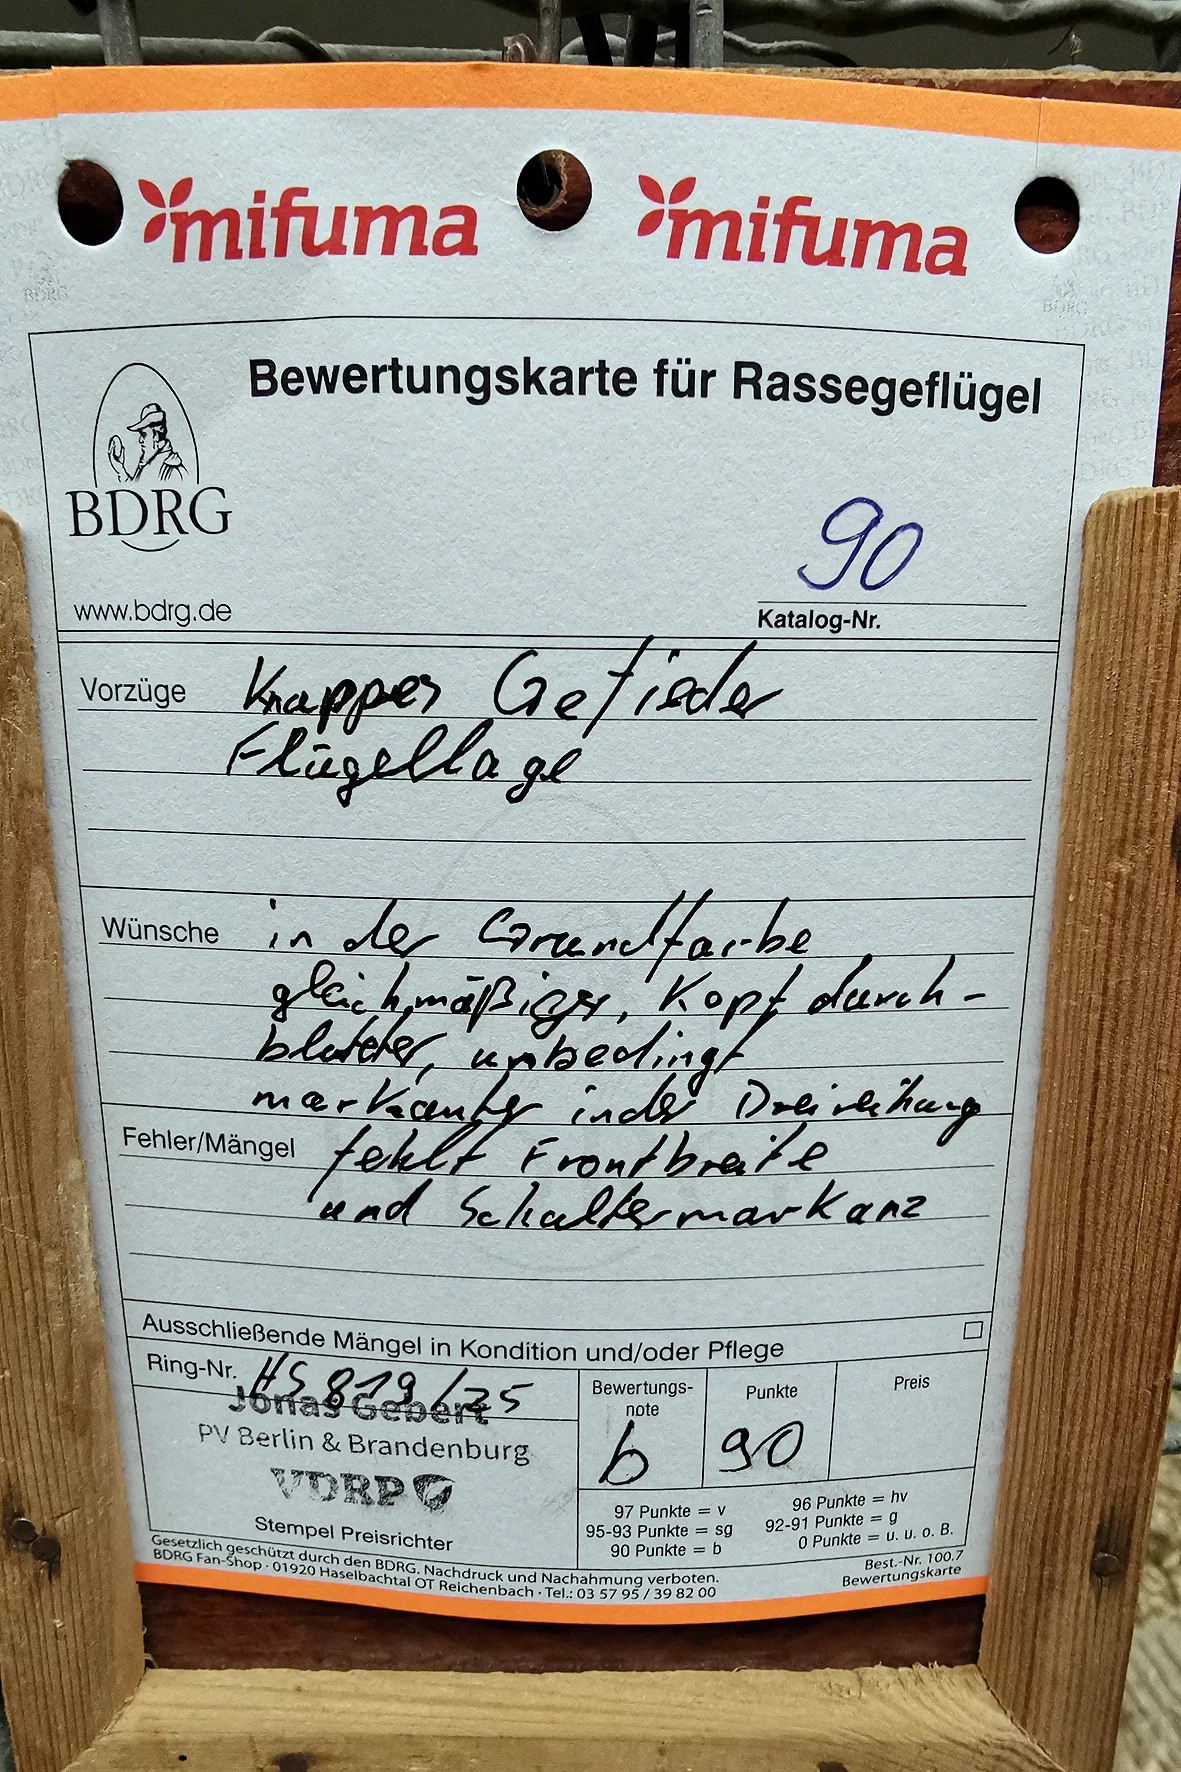 mifuma mifuma
Bewertungskarte für Rassegeflügel
BDRG
www.bdrg.de
90
Katalog-Nr.
Vorzüge Knappes Gefieder
Flügellage
Wünsche in der Grundfarbe
gleichmäßiger, Kopf durch-
bluteter, unbedingt
markanter in der Dreireihung
Fehler/Mängel fehlt Frontbreite
und Schultermarkanz
Ausschließende Mängel in Kondition und/oder Pflege
Ring-Nr. HS 819/25
Jonas Gebert
PV Berlin & Brandenburg
VDRP
Stempel Preisrichter
Bewertungs-
note
b
Punkte
90
Preis
97 Punkte = v 96 Punkte = hv
95-93 Punkte = sg 92-91 Punkte = g
90 Punkte = b 0 Punkte = u. u. o. B.
Gesetzlich geschützt durch den BDRG. Nachdruck und Nachahmung verboten.
BDRG Fan-Shop · 01920 Haselbachtal OT Reichenbach · Tel.: 03 57 95 / 39 82 00
Best.-Nr. 100.7
Bewertungskarte